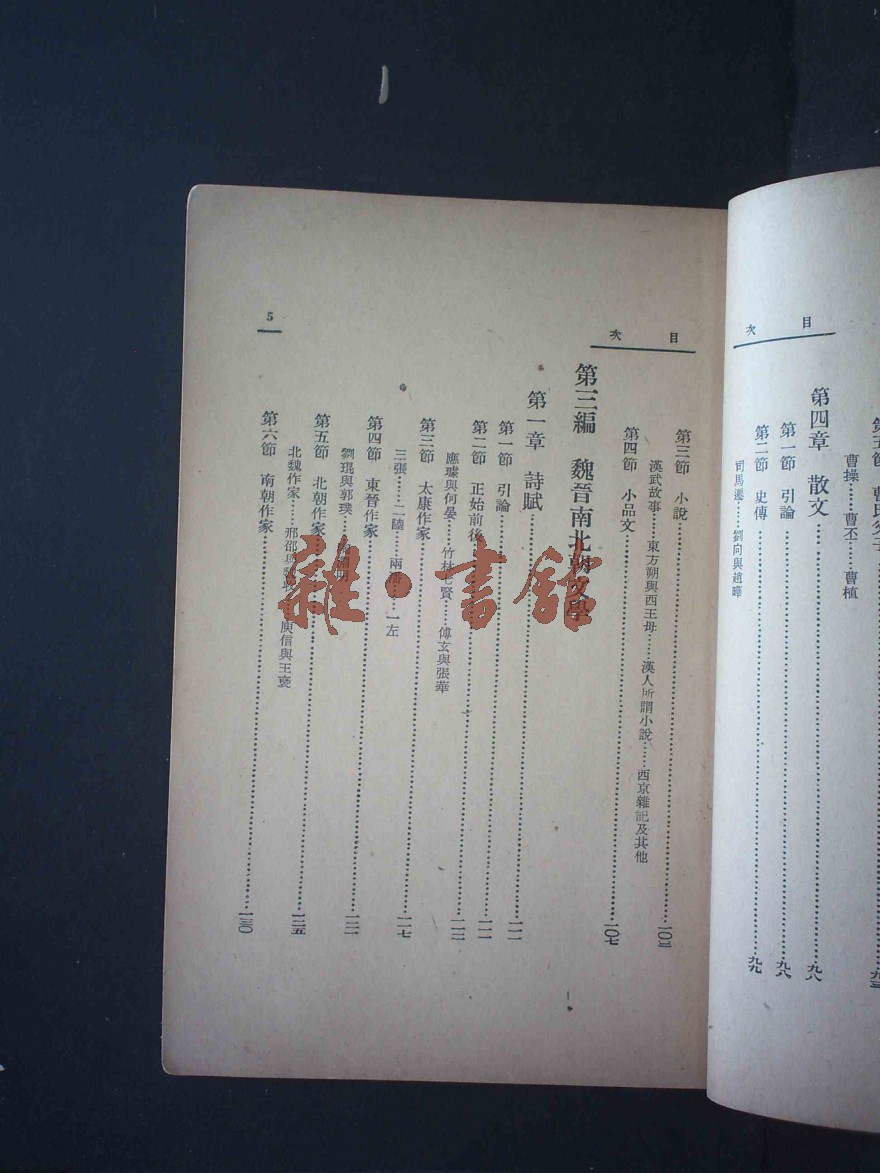 目次
曹操……曹丕……曹植
第四章 散文……九八
第一節 引論……九八
第二節 史傳……九九
司馬遷……劉向與趙曄
目次
第三節 小說……一〇三
漢武故事……東方朔與西王母……漢人所謂小說……西京雜記及其他
第四節 小品文……一〇七
第三編 魏晉南北朝文學
第一章 詩賦……一一一
第一節 引論……一一一
第二節 正始前後……一一二
應璩與何晏……竹林七賢……傅玄與張華
第三節 太康作家……一一七
三張……二陸……兩潘……一左
第四節 東晉作家……一二一
劉琨與郭璞
第五節 北朝作家……一二五
北魏作家……邢邵與魏收……庾信與王褒
第六節 南朝作家……一三〇
5
雜·書館